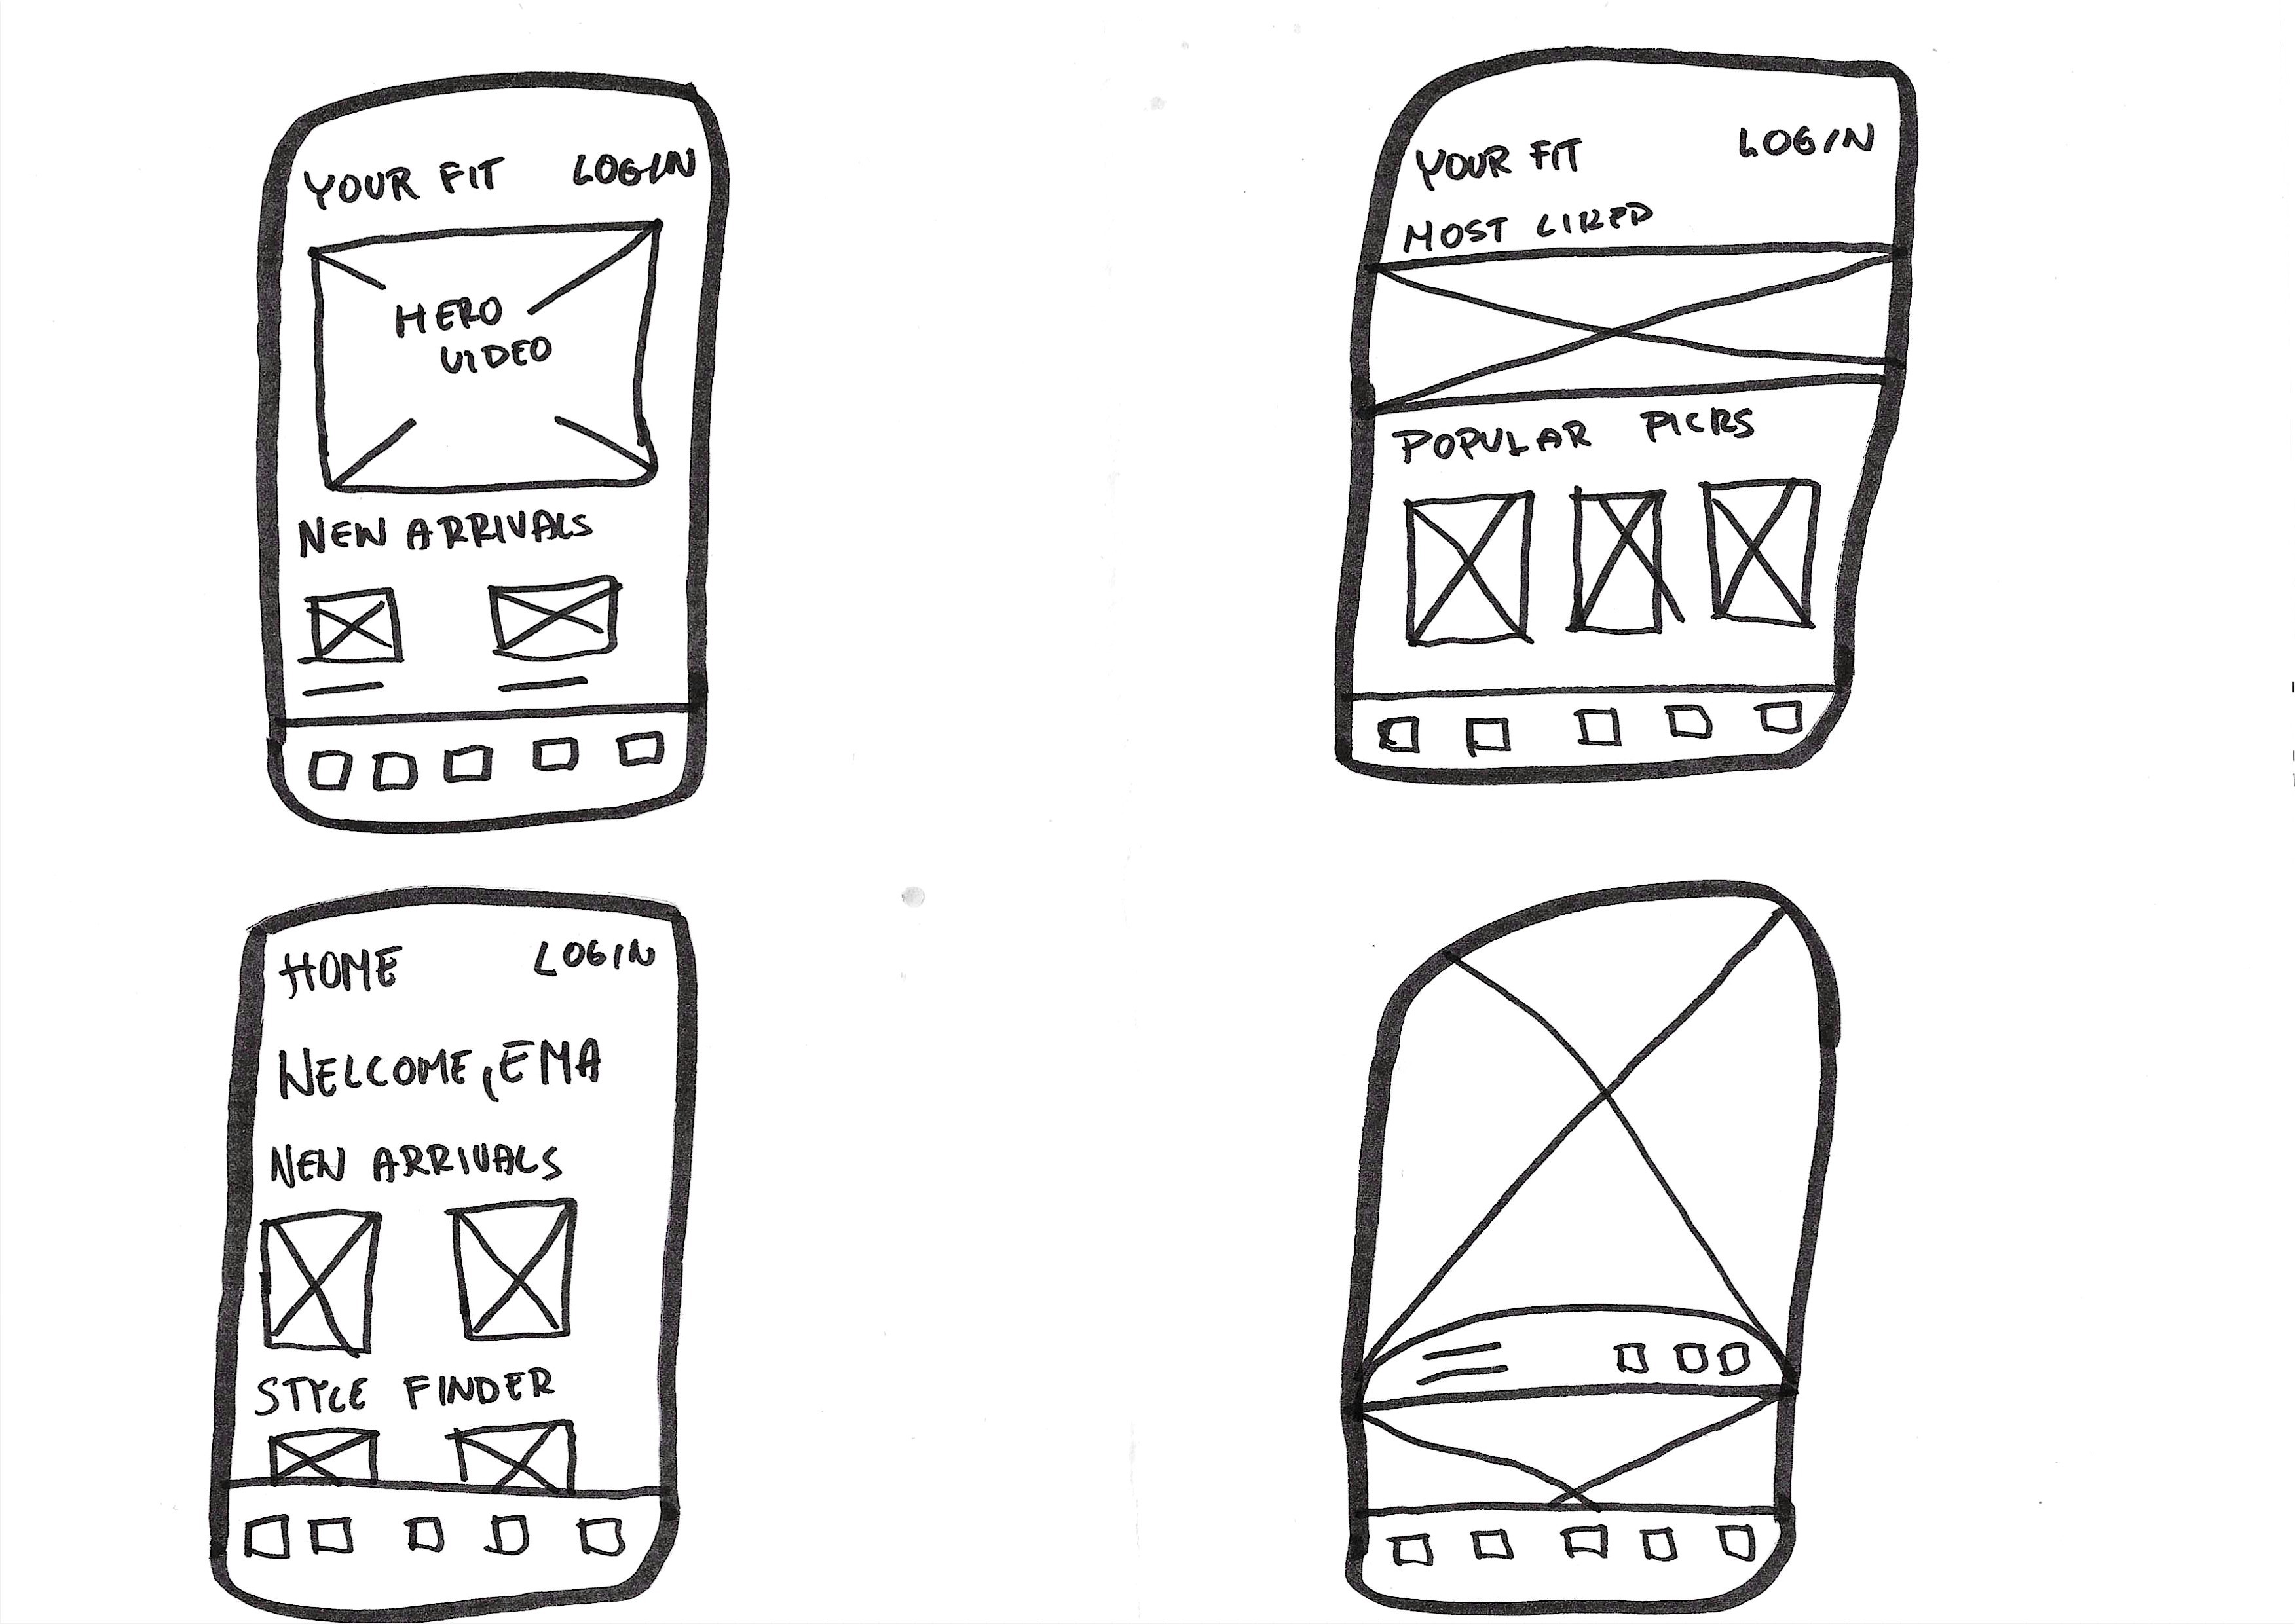 YOUR FIT LOGIN
HERO
VIDEO
NEW ARRIVALS
YOUR FIT LOGIN
MOST LIKED
POPULAR PICKS
HOME LOGIN
WELCOME, EMA
NEW ARRIVALS
STYLE FINDER